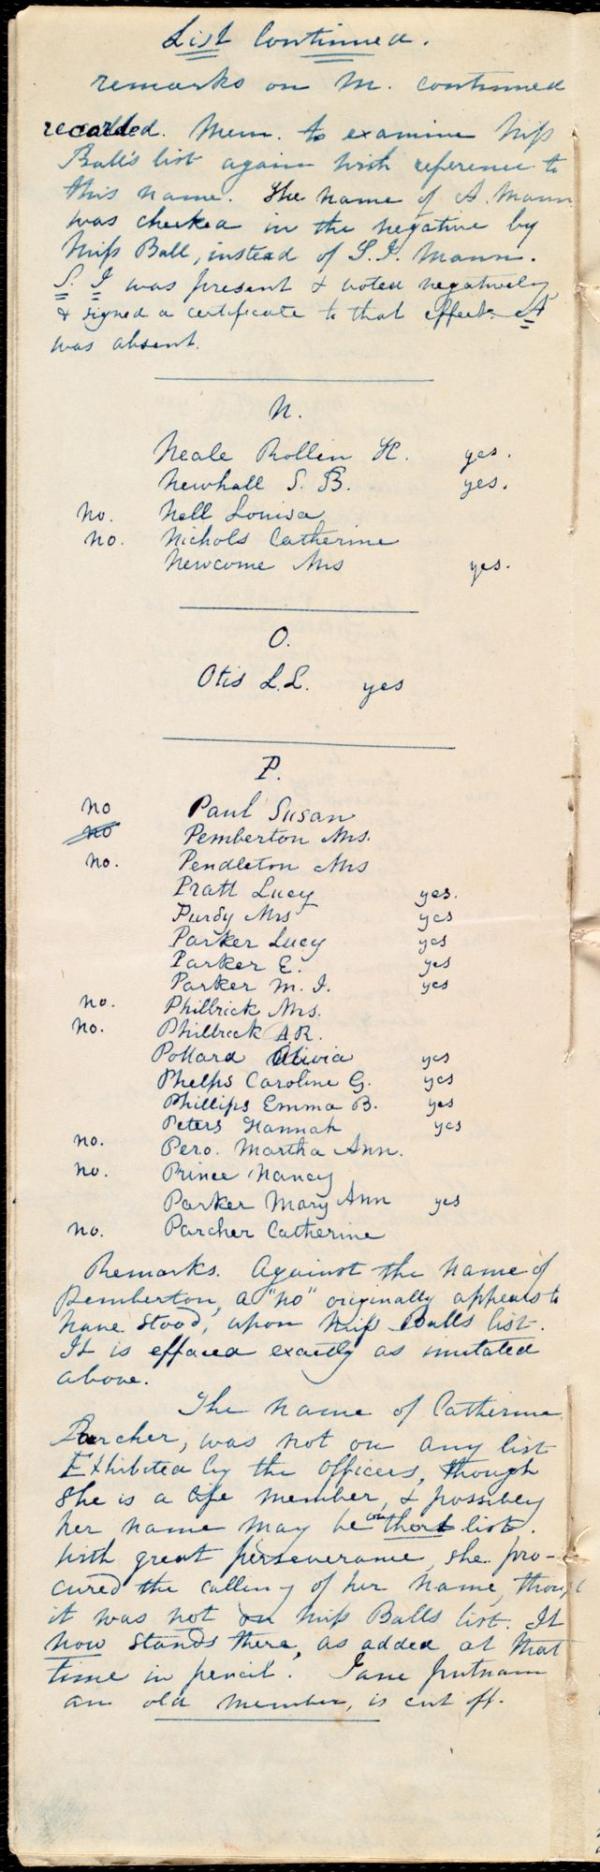 List Continued.
remarks on M. continued
recorded. Mem. to examine Miss
Ball's list again with reference to
this name. The name of A. Mann
was checked in the negative by
Miss Ball, instead of S. I. Mann.
S. I was present & voted negatively
& signed a certificate to that effect. A
was absent.
N.
Neale Rollin H. yes.
Newhall S. B. yes.
no. Nell Louisa
no. Nichols Catherine
Newcome Mrs yes.
O.
Otis L.L. yes
P.
no Paul Susan
no Pemberton Mrs.
no. Pendleton Mrs
Pratt Lucy yes.
Purdy Mrs yes
Parker Lucy yes
Parker E. yes
Parker M. I. yes
no. Philbrick Mrs.
no. Philbrick A R.
Pollard Olivia yes
Phelps Caroline G. yes
Phillips Emma B. yes
Peters Hannah yes
no. Pero. Martha Ann.
no. Prince Nancy
Parker Mary Ann yes
no. Parcher Catherine
Remarks. Against the name of
Pemberton, a "no" originally appears to
have stood, upon Miss Balls list.
It is effaced exactly as imitated
above.
The name of Catherine
Parcher, was not on any list
Exhibited by the officers, though
She is a life member, & possibly
her name may be on that list.
With great perseverance, she pro-
cured the calling of her name, though
it was not on Miss Balls list. It
now stands there, as added at that
time in pencil. Jane Putnam
an old member, is cut off.